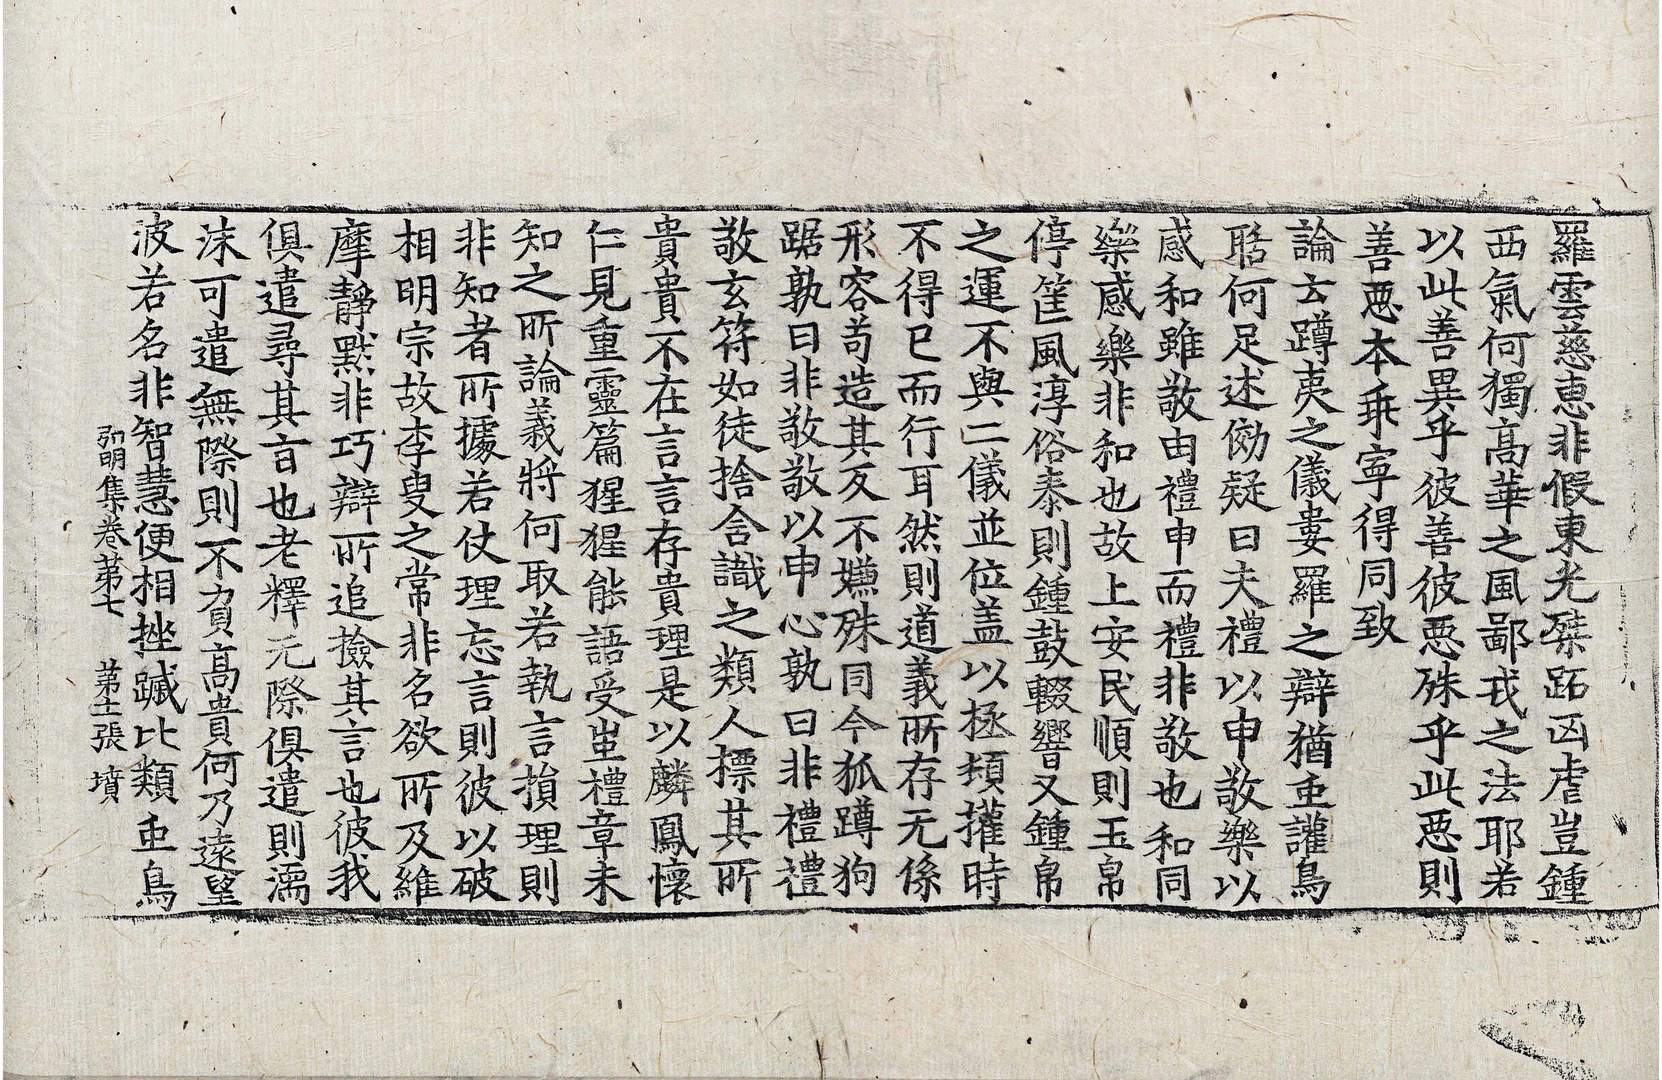 羅雲慈惠非假東光桀跖凶虐豈鍾
西氣何獨高華之風鄙戎之法耶若
以此善異乎彼善彼惡殊乎此惡則
善惡本乖寧得同致
論云蹲夷之儀婁羅之辯猶虫讙鳥
聒何足述効疑曰夫禮以申敬樂以
感和雖敬由禮申而禮非敬也和同
樂感樂非和也故上安民順則玉帛
停筐風淳俗泰則鍾鼓輟響又鍾帛
之運不與二儀並位盖以拯頹攉時
不得已而行耳然則道義所存无係
形容苟造其反不嫌殊同今狐蹲狗
踞孰曰非敬敬以申心孰曰非禮禮
敬玄符如徒捨含識之類人標其所
貴貴不在言言存貴理是以麟鳳懷
仁見重靈篇猩猩能語受蚩禮章未
知之所論義將何取若執言損理則
非知者所據若仗理忘言則彼以破
相明宗故李叟之常非名欲所及維
摩靜默非巧辯所追撿其言也彼我
俱遣尋其旨也老釋元際俱遣則濡
沫可遣無際則不負高貴何乃遠望
波若名非智慧便相挫䠞比類虫鳥
弘明集卷第七　第十二張　墳